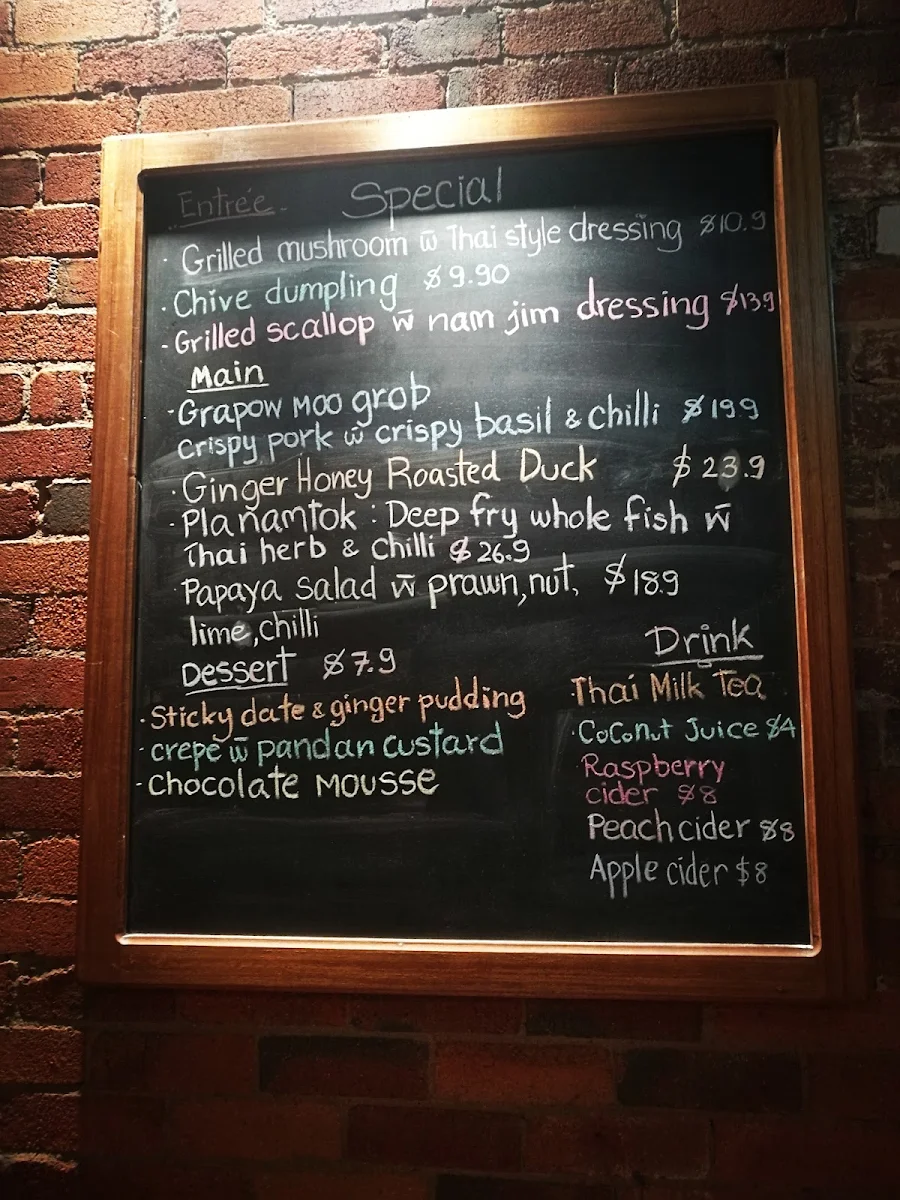 Entrée - Special
· Grilled mushroom w̄ Thai style dressing $10.9
· Chive dumpling $9.90
- Grilled scallop w̄ nam jim dressing $13.9
Main
· Grapow Moo grob
Crispy pork w̄ crispy basil & chilli $19.9
· Ginger Honey Roasted Duck $23.9
· Planamtok : Deep fry whole fish w̄
Thai herb & chilli $26.9
· Papaya salad w̄ prawn, nut, $18.9
lime, chilli
Dessert $7.9
· Sticky date & ginger pudding
- crepe w̄ pandan custard
- Chocolate Mousse
Drink
· Thai Milk Tea
· Coconut Juice $4
· Raspberry
cider $8
Peach cider $8
Apple cider $8